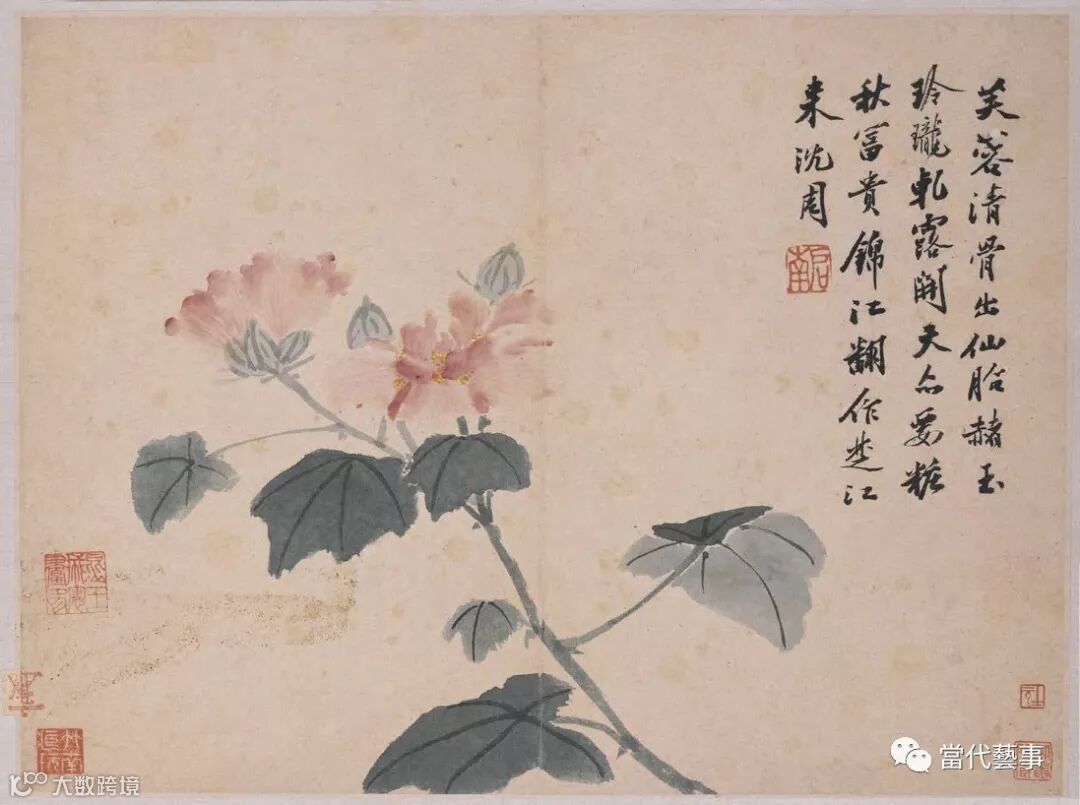 芙蓉清骨出仙胎赭玉
玲瓏軋露開天亦要粧
秋冨貴錦江翻作楚江
来沈周
啟南
當代藝事
大数跨境